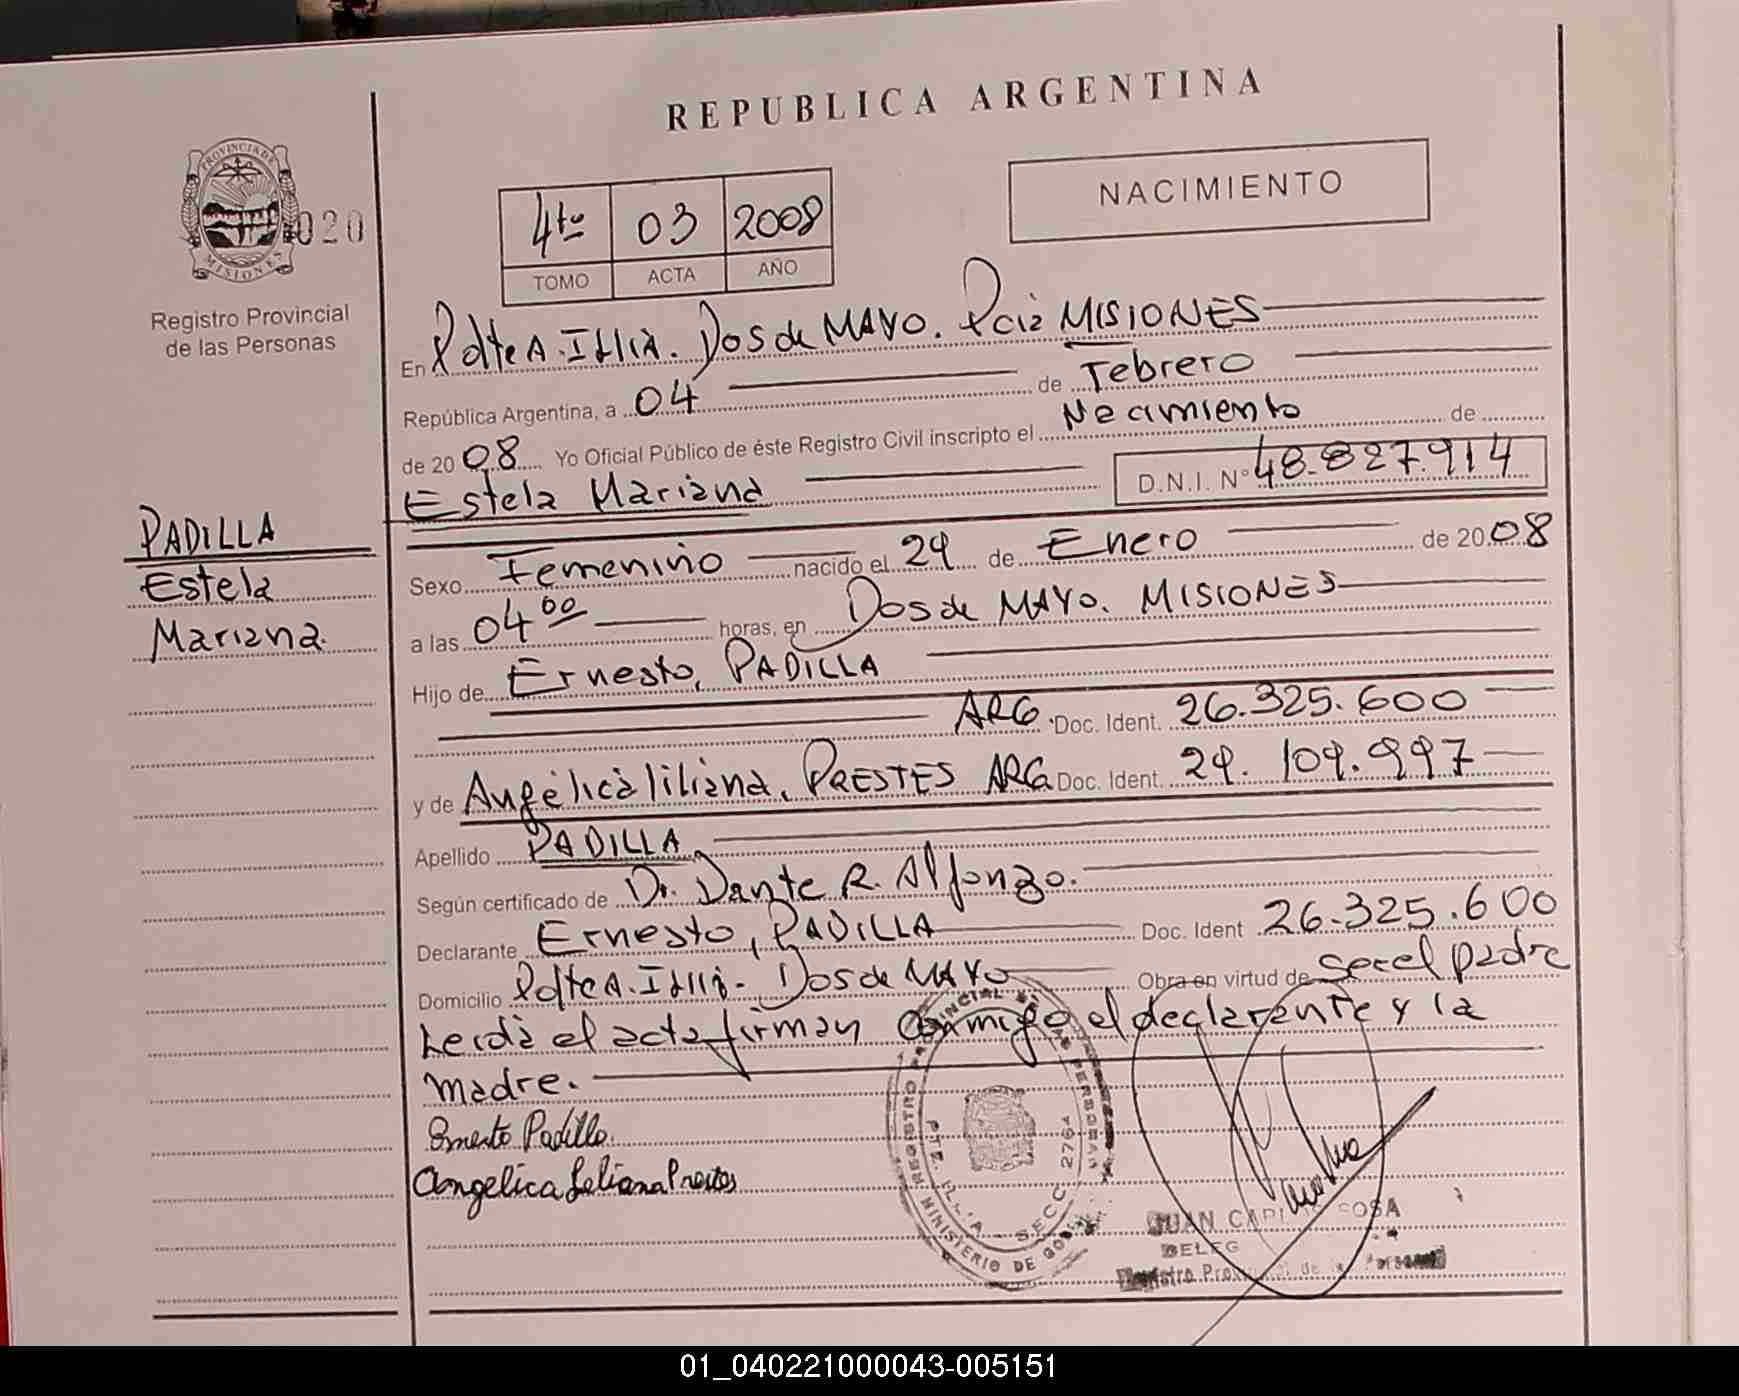 REPUBLICA ARGENTINA
PROVINCIA DE
MISIONES
020
Registro Provincial
de las Personas
4to 03 2008
TOMO ACTA AÑO
NACIMIENTO
En Pdte A. Illia. Dos de MAYO. Pcia MISIONES
República Argentina, a 04 de Febrero
de 2008 Yo Oficial Público de éste Registro Civil inscripto el Nacimiento de
Estela Mariana D.N.I. Nº 48.827.914
PADILLA
Estela
Mariana.
Sexo Femenino nacido el 29 de Enero de 2008
a las 04 00 horas, en Dos de MAYO. MISIONES
Hijo de Ernesto, PADILLA
ARG. Doc. Ident. 26.325.600
y de Angélica liliana, PRESTES ARG Doc. Ident. 29.109.997
Apellido PADILLA
Según certificado de Dr. Dante R. Alfonzo.
Declarante Ernesto, PADILLA Doc. Ident 26.325.600
Domicilio Pdte A. Illia. Dos de MAYO Obra en virtud de ser el padre
Leida el acta firman conmigo el declarante y la
madre.
Ernesto Padilla
Angelica Liliana Prestes
REGISTRO PROVINCIAL DE LAS PERSONAS
MINISTERIO DE GOB
PTE. ILLIA - SECC 2764
JUAN CARLOS SOSA
DELEG
Registro Provincial de las Personas
01_040221000043-005151